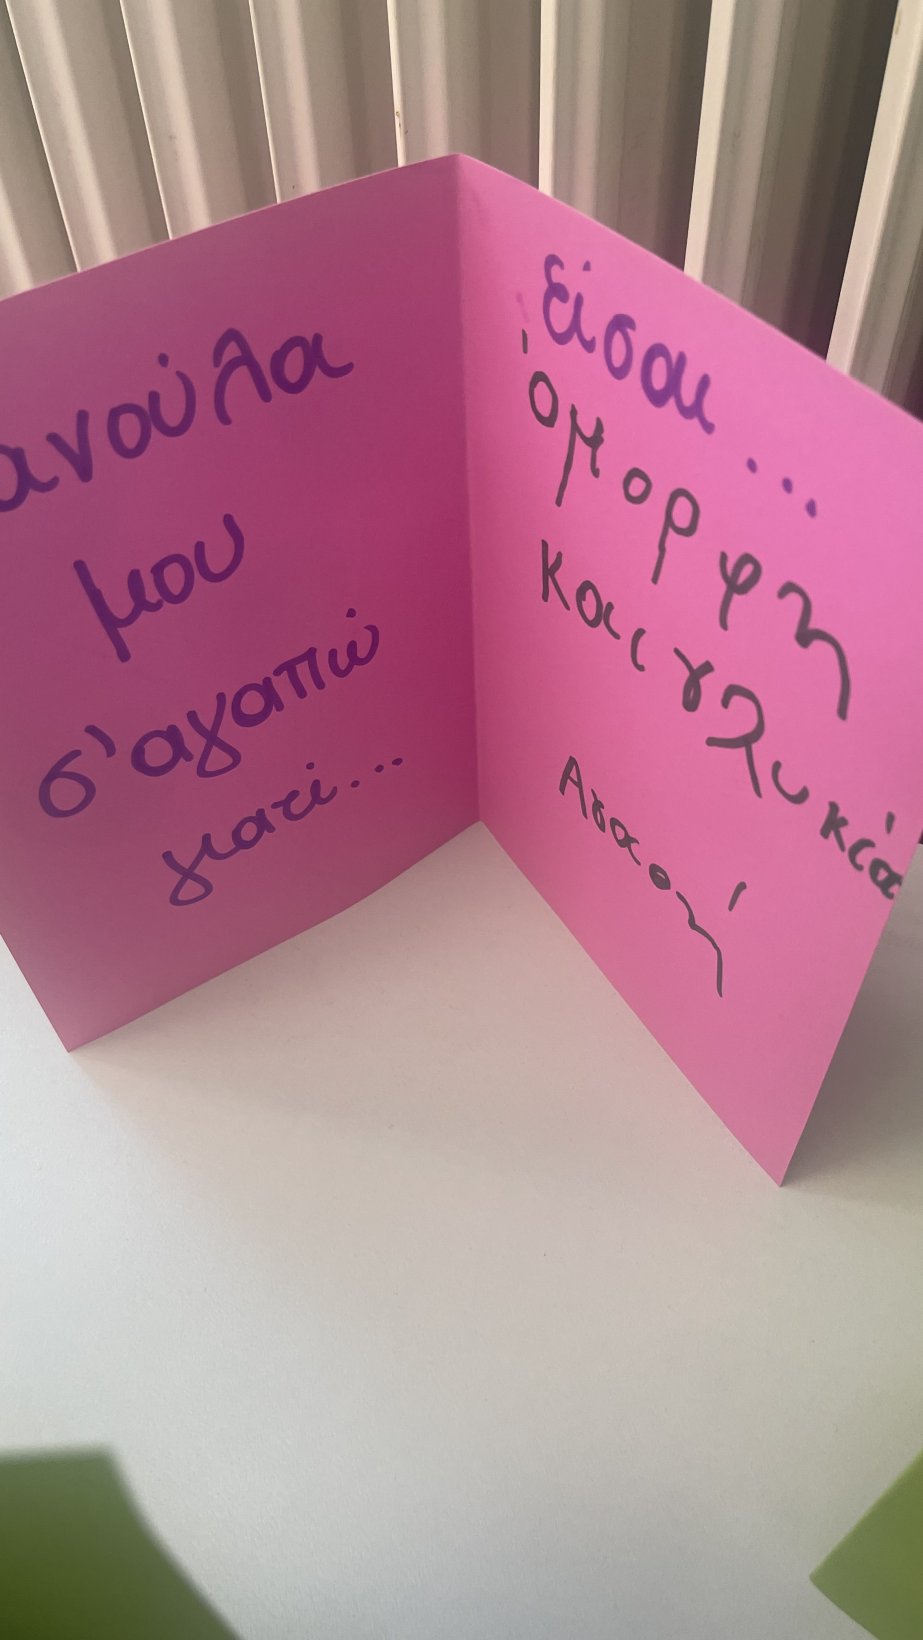 ανούλα
μου
σ'αγαπώ
γιατί...
είσαι...
όμορφη
και γλυκιά